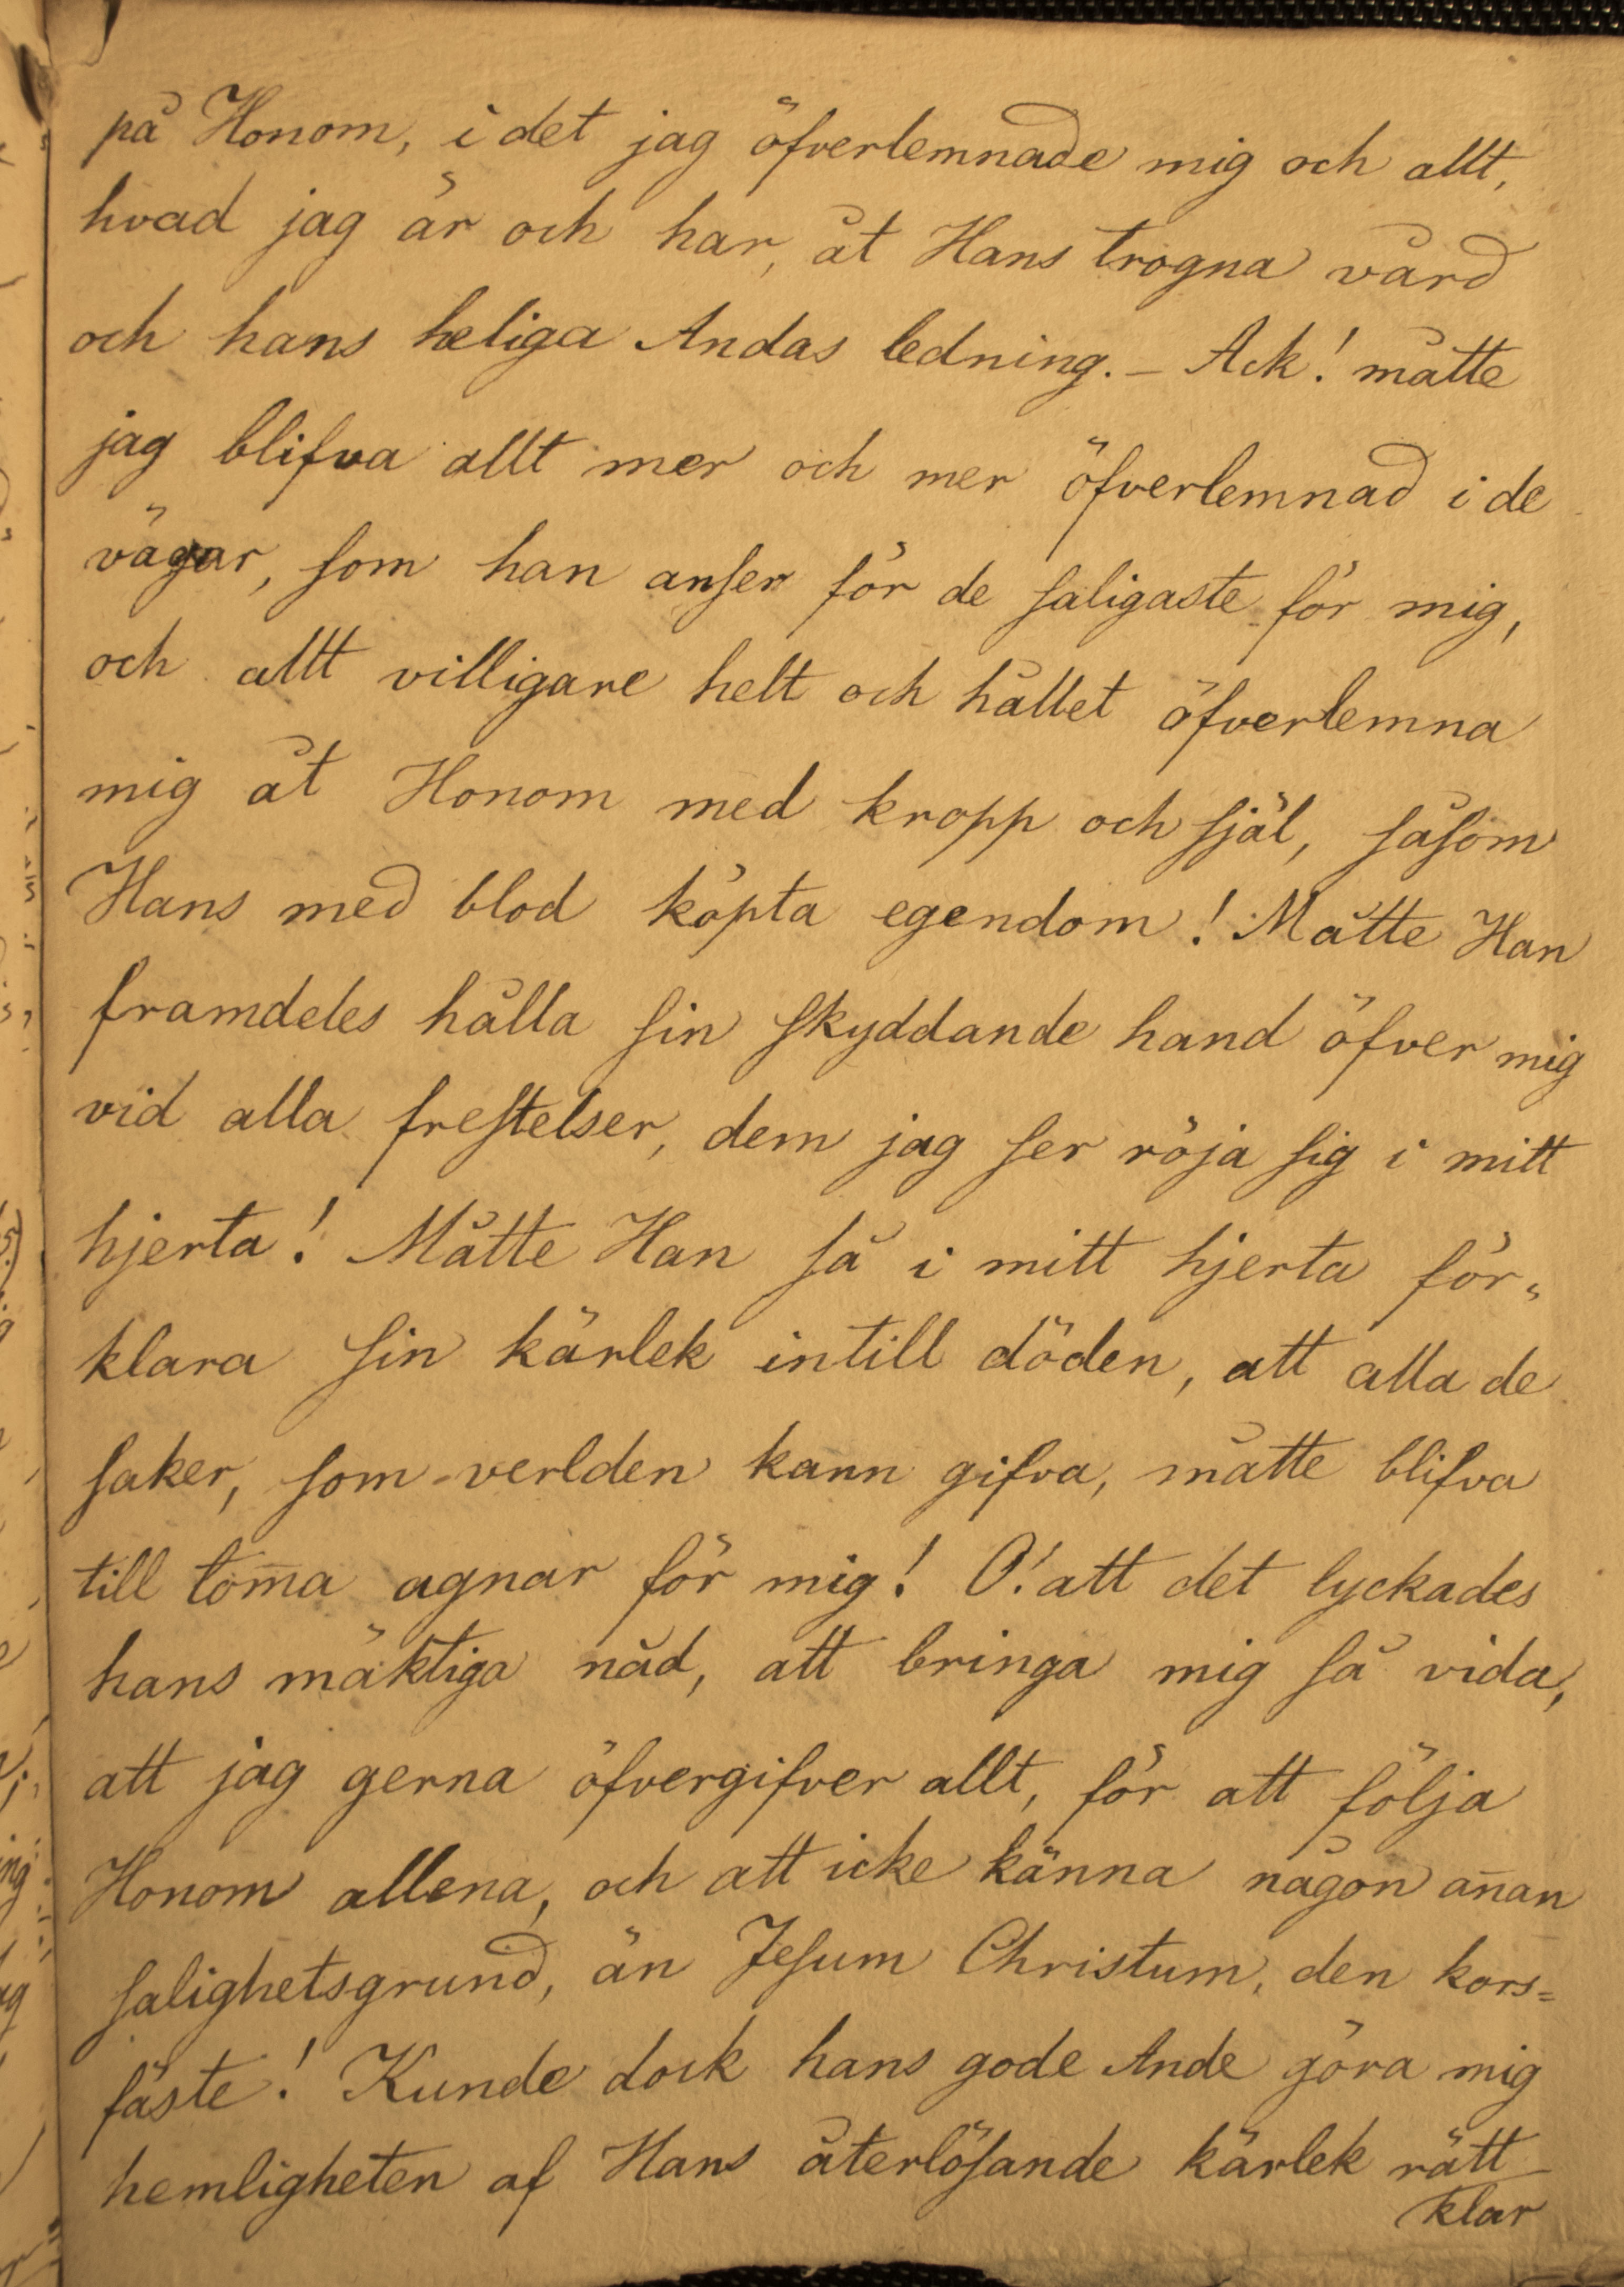 på Honom, i det jag öfverlemnade mig och allt,
hvad jag är och har, åt Hans trogna vård
och hans heliga Andas ledning. – Ack! måtte
jag blifva allt mer och mer öfverlemnad i de
vägar, som han anser för de saligaste för mig,
och allt villigare helt och hållet öfverlemna
mig åt Honom med kropp och själ, såsom
Hans med blod köpta egendom! Måtte Han
framdeles hålla sin skyddande hand öfver mig
vid alla frestelser, dem jag ser röja sig i mitt
hjerta! Måtte Han så i mitt hjerta för„
klara sin kärlek intill döden, att alla de
saker, som verlden kann gifva, måtte blifva
till tom̅a agnar för mig! O! att det lyckades
hans mäktiga nåd, att bringa mig så vida,
att jag gerna öfvergifver allt, för att följa
Honom allena, och att icke känna någon an̅an
salighetsgrund, än Jesum Christum, den kors=
fäste! Kunde dock hans gode Ande göra mig
hemligheten af Hans återlösande kärlek rätt
klar